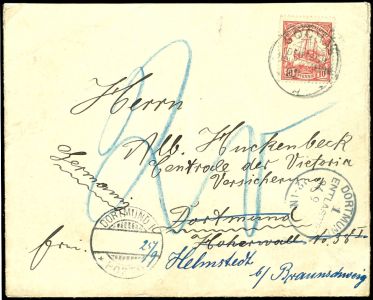 Herrn
Alb. Huckenbeck
Centrale der Victoria
Versicherung
Germany
Dortmund
Hoherwall No. 38 I.
Helmstedt
b/ Braunschweig
frei.
DORTMUND
25/9
DORTMUND
1
ENTLASSEN
9
10